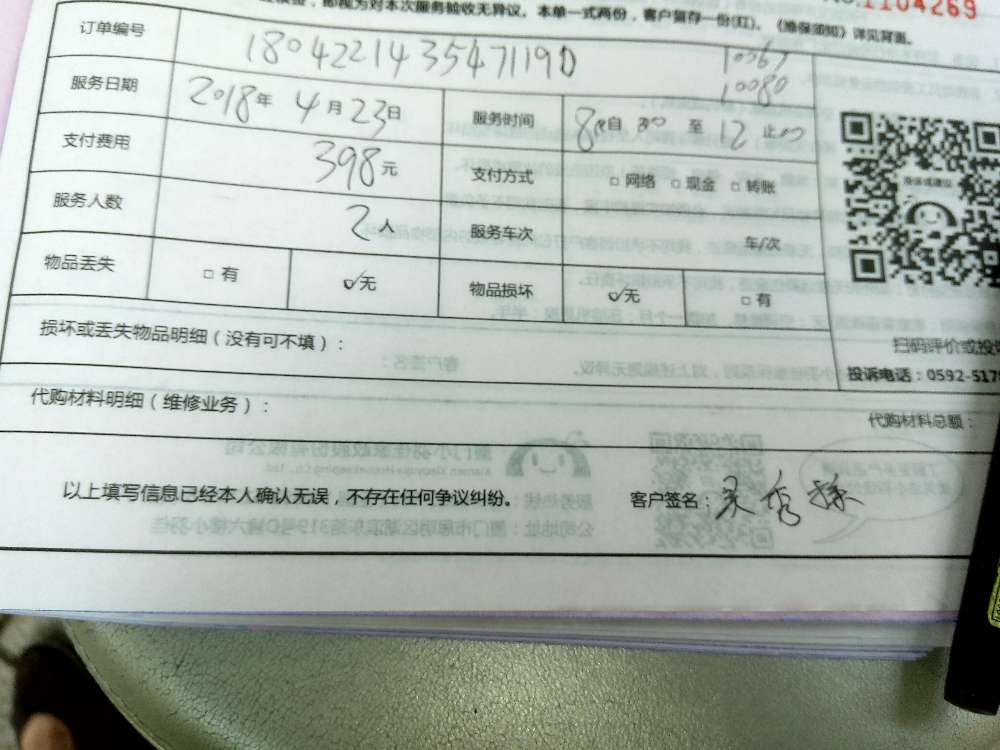 即视为对本次服务验收无异议。本单一式两份，客户留存一份(红)。《维保须知》详见背面。
1104269
订单编号 18042214354711910
10067
10080
服务日期 2018年 4月23日 服务时间 自 至 12 止
支付费用 398元 支付方式 □网络 □现金 □转账
服务人数 2人 服务车次 车/次
物品丢失 □有 ☑无 物品损坏 ☑无 □有
损坏或丢失物品明细（没有可不填）：
扫码评价或投
投诉电话：0592-517
代购材料明细（维修业务）：
代购材料总额：
以上填写信息已经本人确认无误，不存在任何争议纠纷。 客户签名：